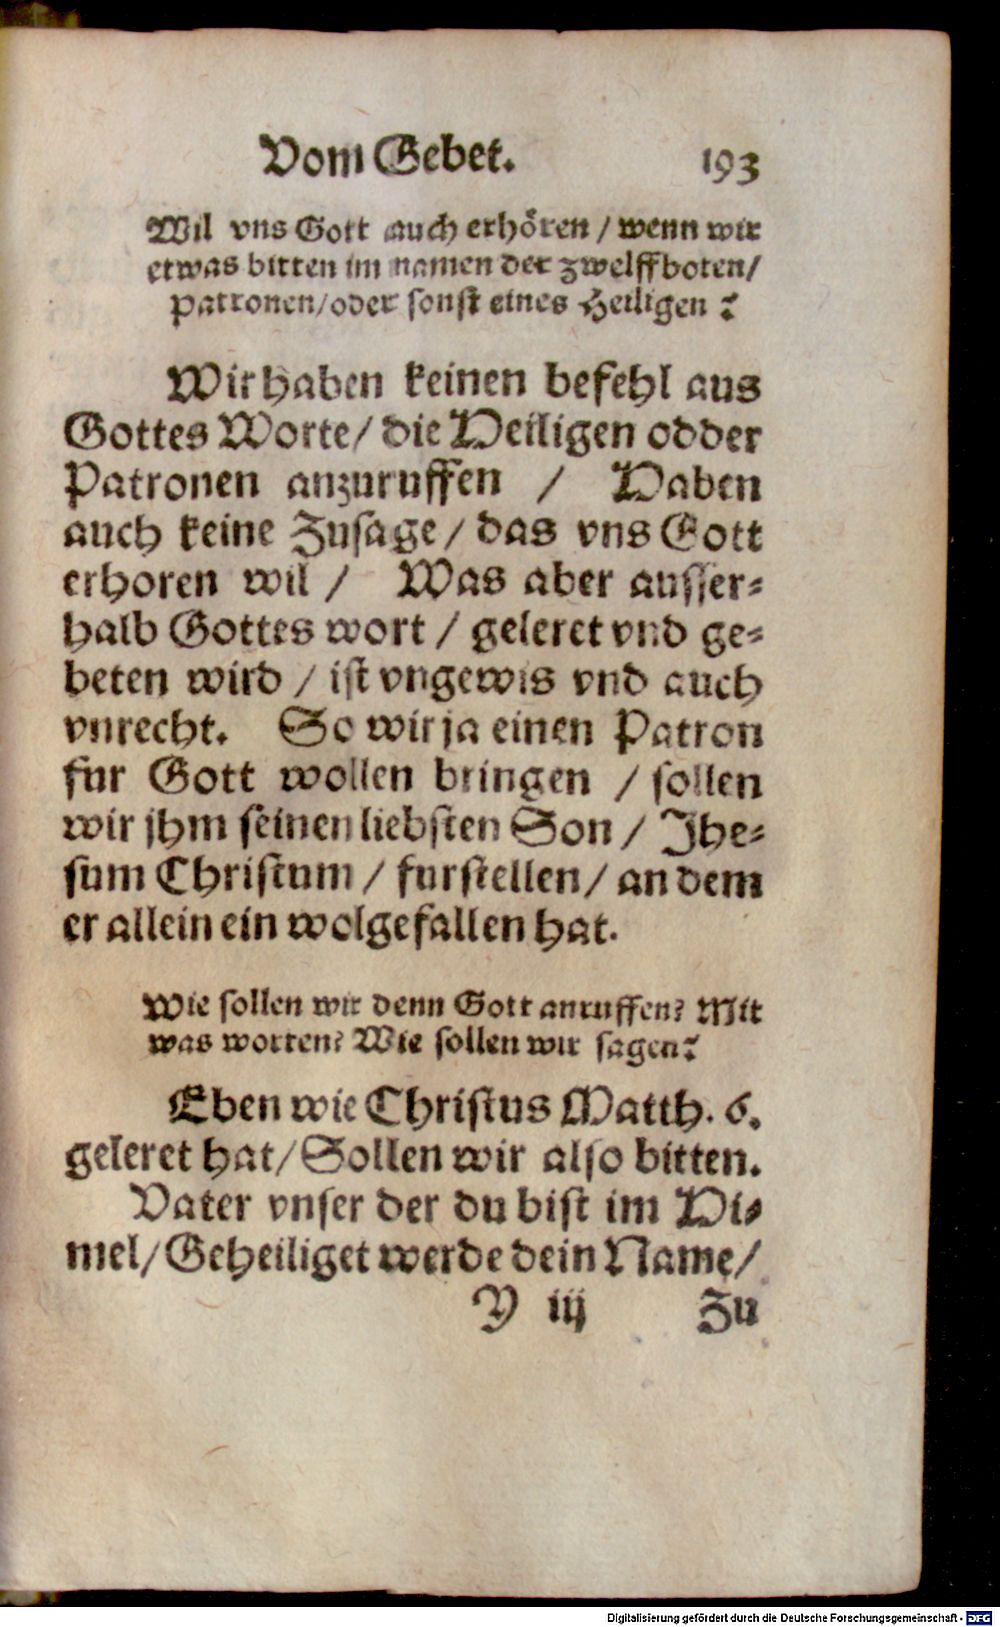 Vom Gebet. 193
Wil vns Gott auch erhören / wenn wir
etwas bitten im namen der zwelffboten /
patronen / oder sonst eines Heiligen ?
Wir haben keinen befehl aus
Gottes Worte / die Heiligen odder
Patronen anzuruffen / Haben
auch keine Zusage / das vns Gott
erhoren wil / Was aber ausser=
halb Gottes wort / geleret vnd ge=
beten wird / ist vngewis vnd auch
vnrecht. So wir ja einen Patron
fur Gott wollen bringen / sollen
wir jhm seinen liebsten Son / Jhe=
sum Christum / furstellen / an dem
er allein ein wolgefallen hat.
Wie sollen wir denn Gott anruffen? Mit
was worten? Wie sollen wir sagen?
Eben wie Christus Matth. 6.
geleret hat / Sollen wir also bitten.
Vater vnser der du bist im Hi=
mel / Geheiliget werde dein Name /
Y iij Zu
Digitalisierung gefördert durch die Deutsche Forschungsgemeinschaft - DFG